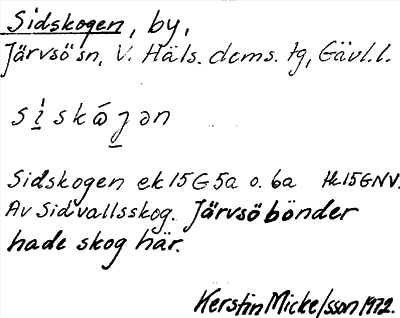 Sidskogen, by,
Järvsö sn, V. Häls. doms. tg, Gävl. l.
si̱skǻɟ̱ən
Sidskogen ek 15G5a o. 6a Hk 15GNV.
Av Sidvallsskog. Järvsöbönder
hade skog här.
Kerstin Mickelsson 1972.